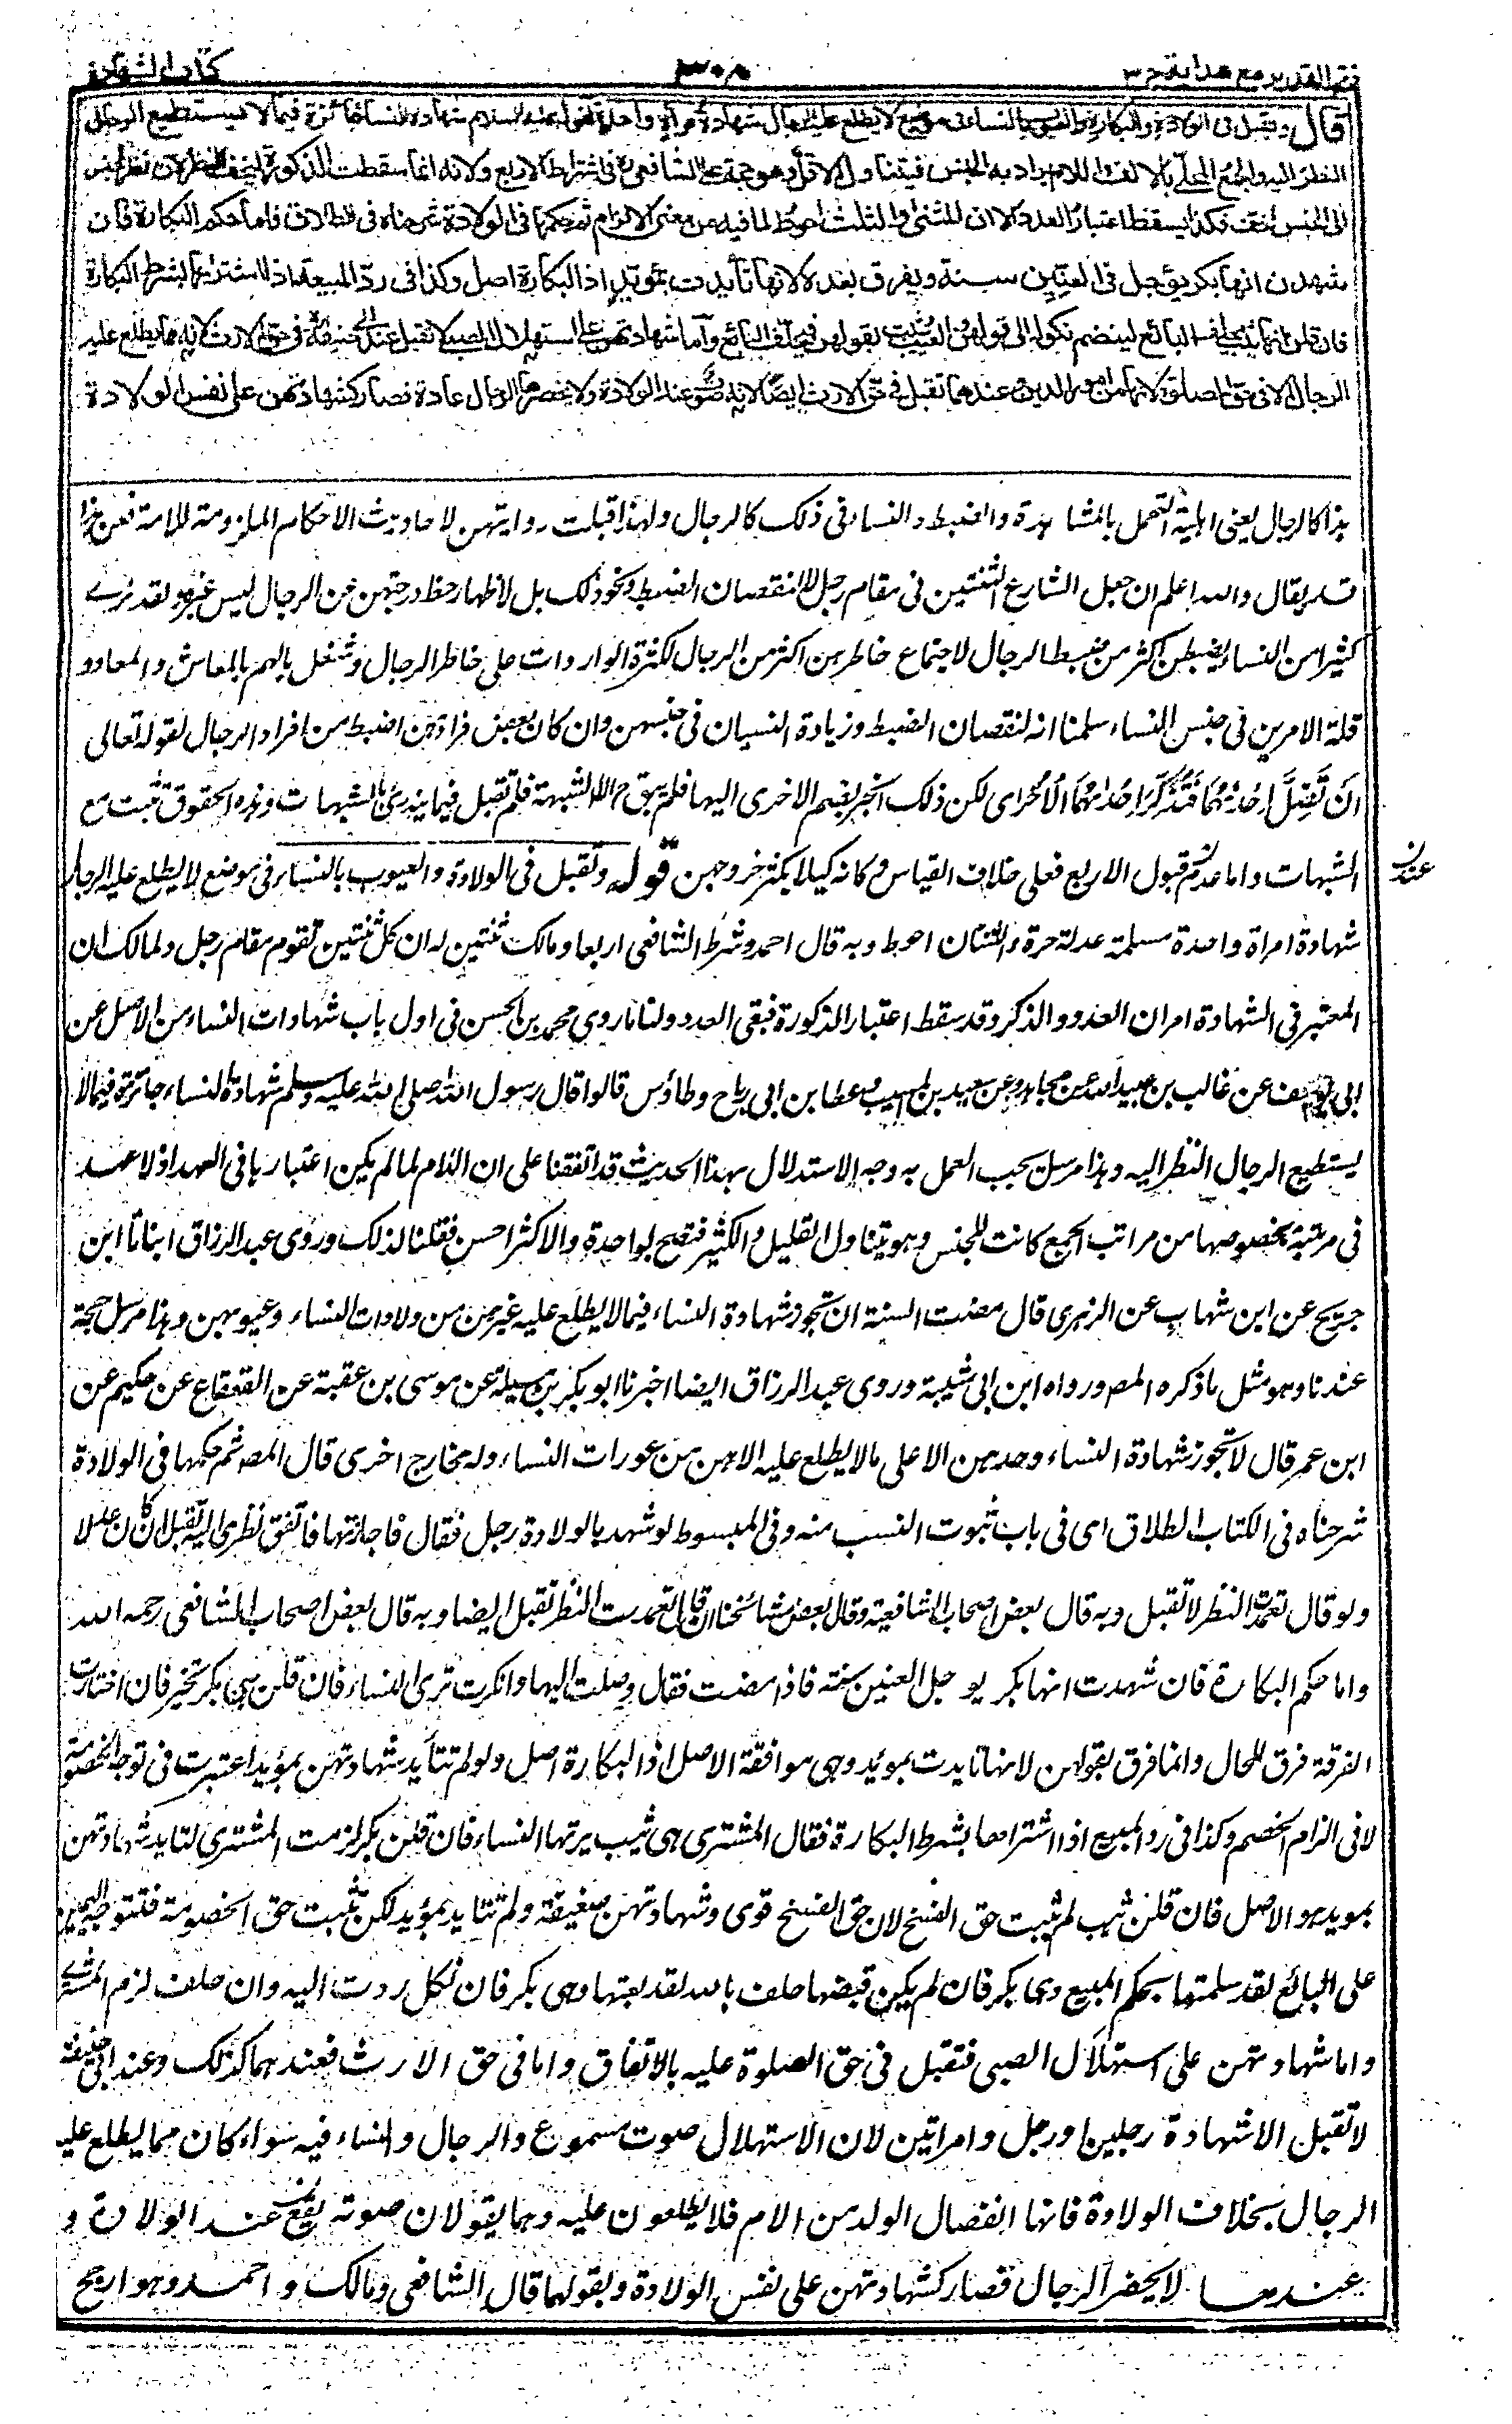 فتح القدير مع هداية ج ٣
٣٠٨
كتاب الشهادة
قال وتقبل فى الولادة والبكارة والعيوب بالنساء فى موضع لا يطلع عليه الرجال شهادة امرأة واحدة لقوله عليه السلام شهادة النساء جائزة فيما لا يستطيع الرجال
النظر اليه والجمع المحلّى بالالف واللام يراد به الجنس فيتناول الاقلّ وهو حجة على الشافعى رح فى اشتراط الاربع ولانه انما سقطت الذكورة ليخف النظر لان نظر الجنس
الى الجنس اخف فكذا يسقط اعتبار العدد الا ان المثنى والثلث احوط لما فيه من معنى الالزام ثم حكمها فى الولادة شرحناه فى الطلاق فاما حكم البكارة فان
شهدن انها بكر يؤجل فى العنين سنة ويفرق بعده لانها تأيدت بمؤيد اذ البكارة اصل وكذا فى ردّ المبيعة اذا اشتراها بشرط البكارة
فان قلن انها ثيب يحلف البائع لينضم نكوله الى قولهن والعيب يثبت بقولهن فيحلف البائع وأما شهادتهن على استهلال الصبى لا تقبل عند ابى حنيفة رح فى حق الارث لانه مما يطلع عليه
الرجال الا فى حق الصلوة لانها من امور الدين وعندهما تقبل فى حق الارث ايضًا لانه صوت عند الولادة ولا يحضرها الرجال عادة فصار كشهادتهن على نفس الولادة
هذا كالرجال يعنى اهلية التحمل بالمشاهدة والضبط والنساء فى ذلك كالرجال ولهذا قبلت روايتهن لاحاديث الاحكام الملزومة للامة فعن هذا
قد يقال والله اعلم ان جعل الشارع الثنتين فى مقام رجل لا لنقصان الضبط ونحو ذلك بل لاظهار حط درجتهن عن الرجال ليس غير ولقد نرى
كثيرا من النساء يضبطن اكثر من ضبط الرجال لاجتماع خاطرهن اكثر من الرجال لكثرة الواردات على خاطر الرجال وشغل بالهم بالمعاش والمعاد و
قلة الامرين فى جنس النساء سلمنا انه لنقصان الضبط وزيادة النسيان فى جنسهن وان كان بعض افرادهن اضبط من افراد الرجال لقوله تعالى
اَنْ تَضِلَّ اِحْدٰىهُمَا فَتُذَكِّرَ اِحْدٰىهُمَا الْاُخْرٰى لكن ذلك انجبر بضم الاخرى اليها فلم يبق ح الا الشبهة فلم تقبل فيما يندرئ بالشبهات وهذه الحقوق تثبت مع
الشبهات واما عدم قبول الاربع فعلى خلاف القياس وكانه كيلا يكثر خروجهن قوله وتقبل فى الولادة والعيوب بالنساء فى موضع لا يطلع عليه الرجال
شهادة امراة واحدة مسلمة عدلة حرة والثنتان احوط وبه قال احمد وشرط الشافعى اربعا ومالك ثنتين له ان كل ثنتين تقوم مقام رجل ولمالك ان
المعتبر فى الشهادة امران العدد والذكر وقد سقط اعتبار الذكورة فبقى العدد ولنا ما روى محمد بن الحسن فى اول باب شهادات النساء من الاصل عن
ابى يوسف عن غالب بن عبيد الله عن مجاهد وعن سعيد بن المسيب وعطا بن ابى رباح وطاؤس قالوا قال رسول الله صلى الله عليه وسلم شهادة النساء جائزة فيما لا
يستطيع الرجال النظر اليه وهذا مرسل يجب العمل به وجه الاستدلال بهذا الحديث قد اتفقنا على ان اللام لما لم يكن اعتبارها فى العهد اذ لا عهد
فى مرتبة بخصوصها من مراتب الجمع كانت للجنس وهو يتناول القليل والكثير فتصح بواحدة والاكثر احسن فقلنا لذلك وروى عبد الرزاق انباتا ابن
جريج عن ابن شهاب عن الزهرى قال مضت السنة ان تجوز شهادة النساء فيما لا يطلع عليه غيرهن من ولادات النساء وعيوبهن وهذا مرسل حجة
عندنا وهو مثل ما ذكره المصـ ورواه ابن ابى شيبة وروى عبد الرزاق ايضا اخبرنا ابو بكر بن سبلة عن موسى بن عقبة عن القعقاع عن حكيم عن
ابن عمر قال لا تجوز شهادة النساء وحدهن الا على ما لا يطلع عليه الا هن من عورات النساء وله مخارج اخرى قال المصـ ثم حكمها فى الولادة
شرحناه فى الكتاب الطلاق اى فى باب ثبوت النسب منه وفى المبسوط لو شهد بالولادة رجل فقال فاجأتها فاتفق نظرى اليه تقبل ان كان عدلا
ولو قال تعمدت النظر لا تقبل وبه قال بعض اصحاب الشافعية وقال بعض مشائخنا ان قال تعمدت النظر تقبل ايضا وبه قال بعض اصحاب الشافعى رحمه الله
واما حكم البكارة فان شهدت انها بكر يوجل العنين سنة فاذا مضت فقال وصلت اليها وانكرت ترى النساء فان قلن هى بكر تخير فان اختارت
الفرقة فرق للحال وانما فرق بقولهن لانها تايدت بمويد وهى موافقة الاصل اذ البكارة اصل ولو لم تتأيد شهادتهن بمويد اعتبرت فى توجه الخصومة
لا فى الزام الخصم وكذا فى رد المبيع اذا اشتراها بشرط البكارة فقال المشترى هى ثيب يرتها النساء فان قلن بكر لزمت المشترى لتايد شهادتهن
بمويد هو الاصل فان قلن ثيب لم يثبت حق الفسخ لان حق الفسخ قوى وشهادتهن ضعيفة ولم تتايد بمويد لكن تثبت حق الخصومة فتتوجه اليمين
على البائع لقد سلمتها بحكم المبيع وهى بكر فان لم يكن قبضها حلف بالله لقد بعتها وهى بكر فان نكل ردت اليه وان حلف لزم المشترى
واما شهادتهن على استهلال الصبى فتقبل فى حق الصلوة عليه بالاتفاق واما فى حق الارث فعندهما كذلك وعند ابى حنيفة
لا تقبل الا شهادة رجلين او رجل وامراتين لان الاستهلال صوت مسموع والرجال والنساء فيه سواء كان مما يطلع عليه
الرجال بخلاف الولادة فانها انفصال الولد من الام فلا يطلعون عليه وهما يقولان صوته يقع عند الولادة و
عندها لا يحضر الرجال فصار كشهادتهن على نفس الولادة وبقولهما قال الشافعى ومالك و احمد وهو ارجح